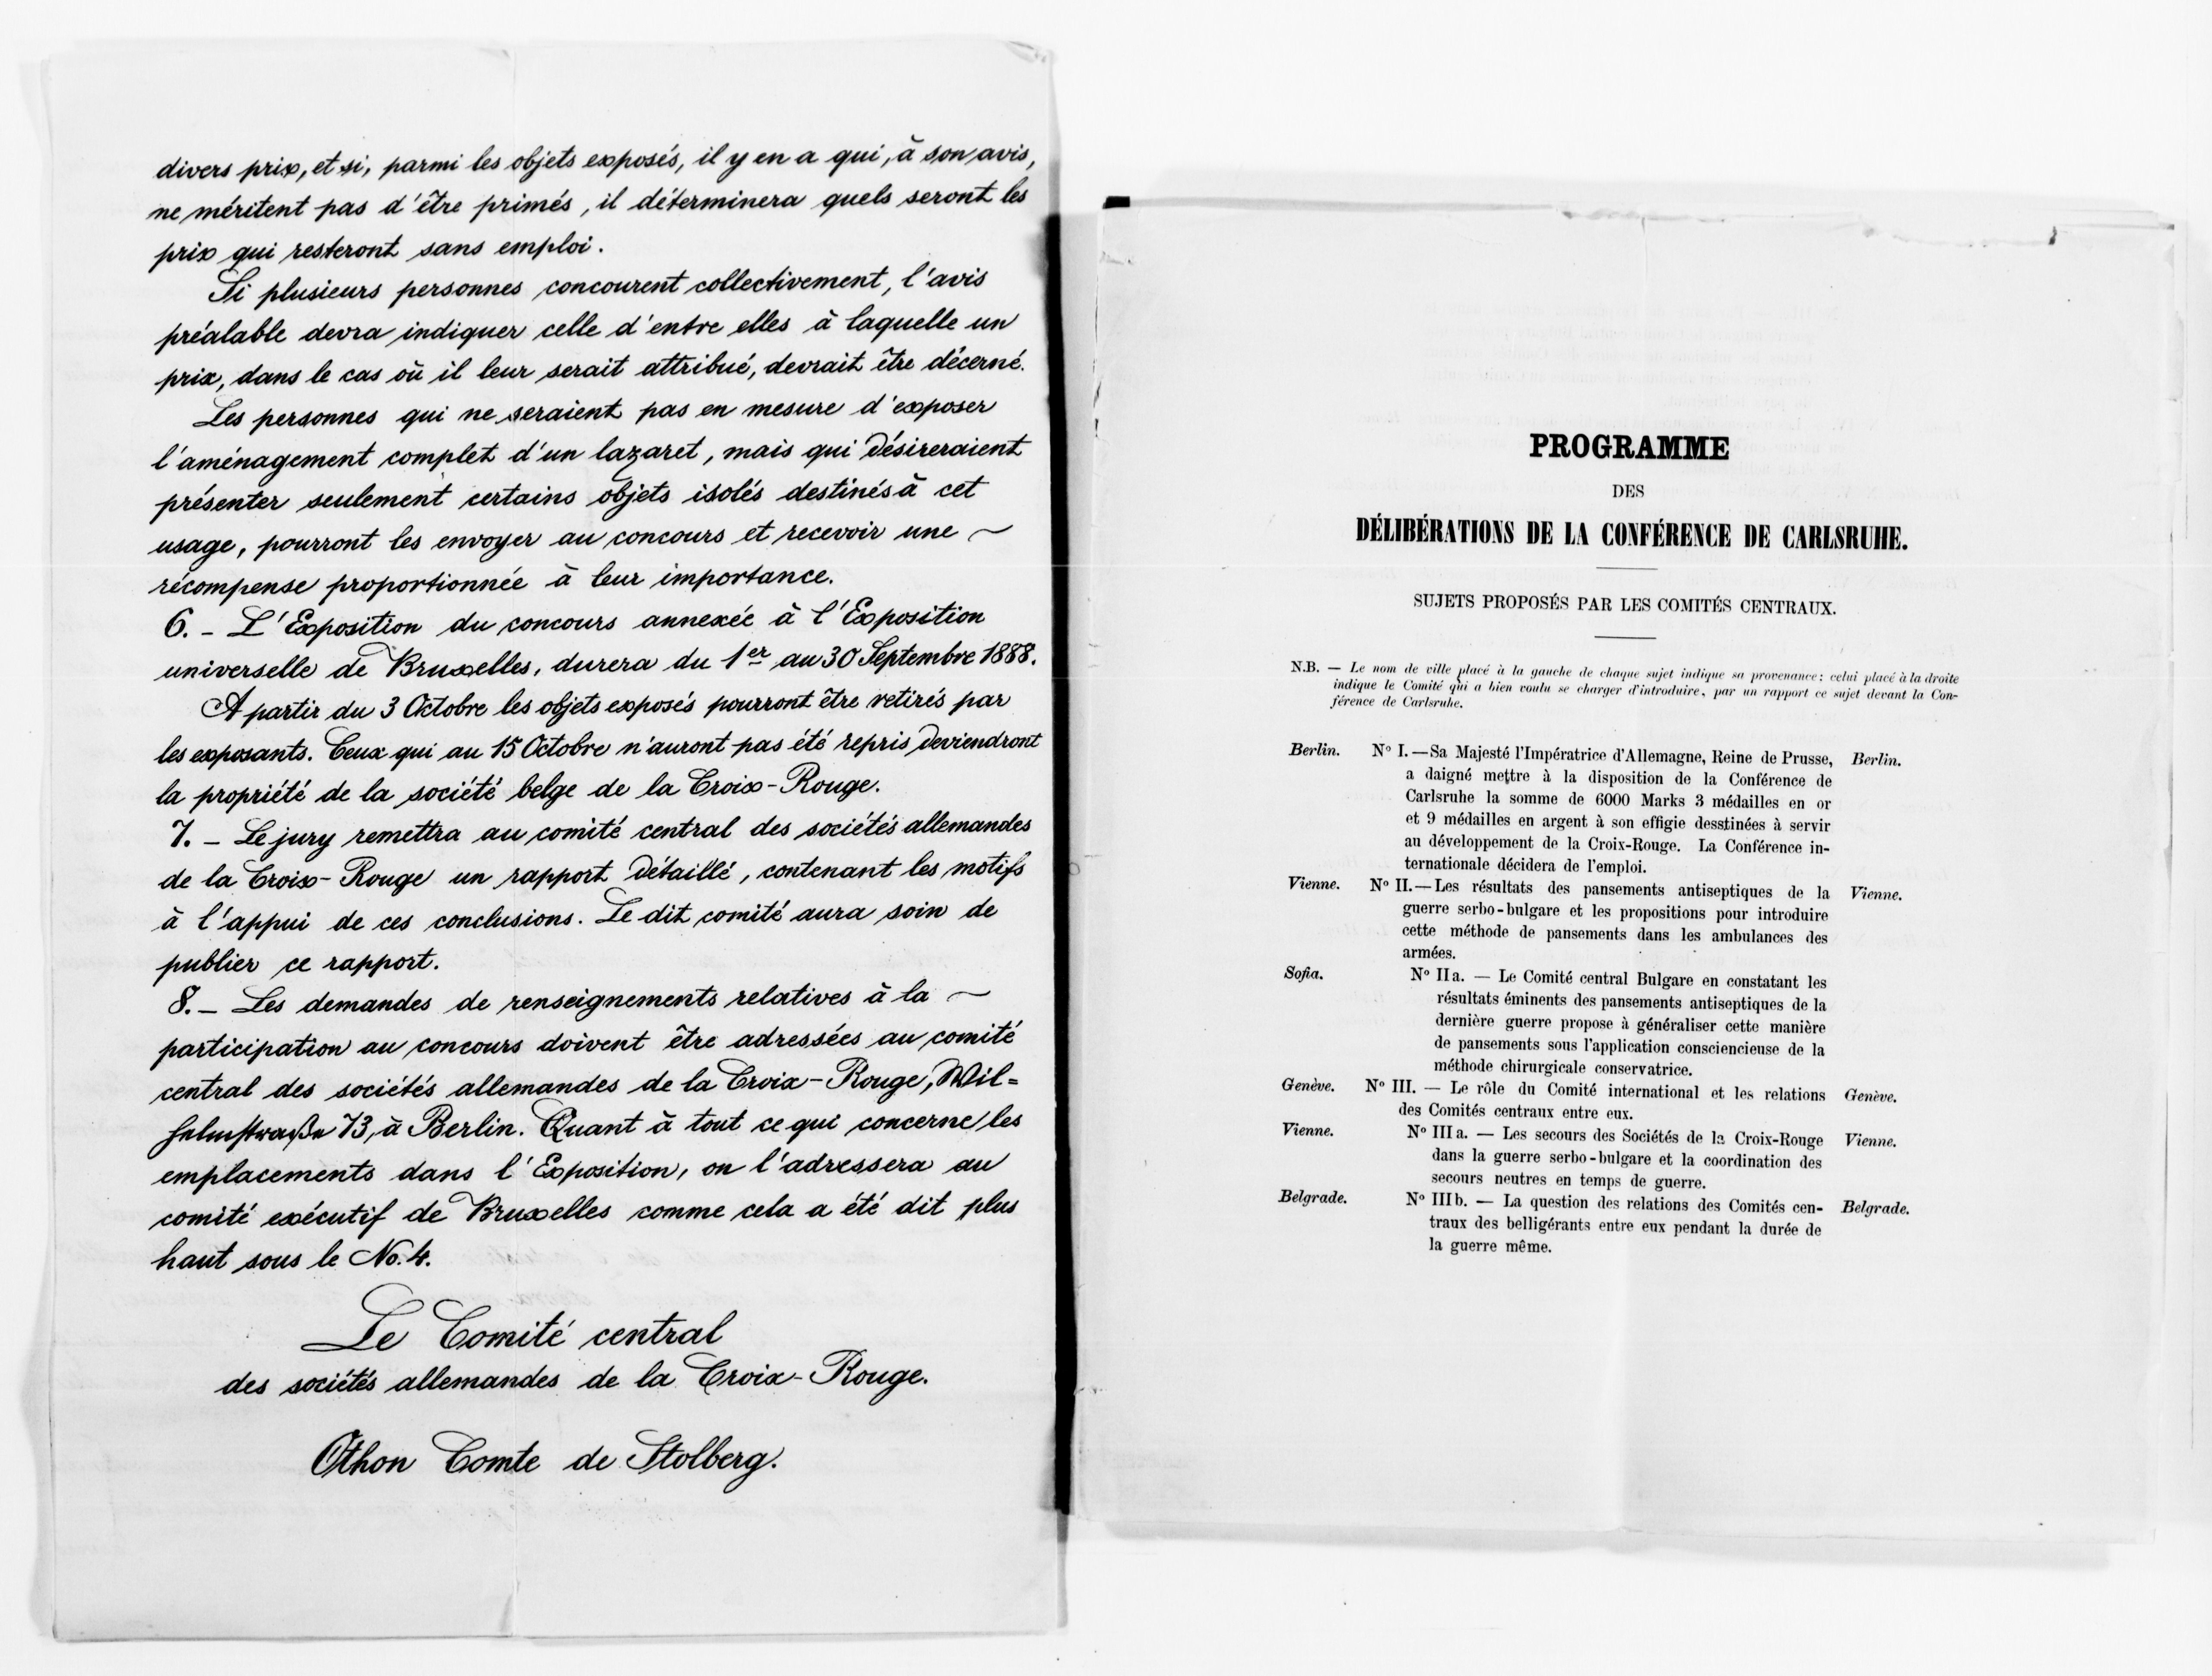 divers prix, et si, parmi les objets exposés, il y en a qui, à son avis,
ne méritent pas d'être primés, il déterminera quels seront les
prix qui resteront sans emploi.
Si plusieurs personnes concourent collectivement, l'avis
préalable devra indiquer celle d'entre elles à laquelle un
prix, dans le cas où il leur serait attribué, devrait être décerné.
Les personnes qui ne seraient pas en mesure d'exposer
l'aménagement complet d'un lazaret, mais qui désireraient
présenter seulement certains objets isolés destinés à cet
usage, pourront les envoyer au concours et recevoir une ~
récompense proportionnée à leur importance.
6. – L'Exposition du concours annexée à l'Exposition
universelle de Bruxelles, durera du 1er au 30 Septembre 1888.
A partir du 3 Octobre les objets exposés pourront être retirés par
les exposants. Ceux qui au 15 Octobre n'auront pas été repris deviendront
la propriété de la société belge de la Croix-Rouge.
7. – Le jury remettra au comité central des sociétés allemandes
de la Croix-Rouge un rapport détaillé, contenant les motifs
à l'appui de ces conclusions. Le dit comité aura soin de
publier ce rapport.
8. – Les demandes de renseignements relatives à la ~
participation au concours doivent être adressées au comité
central des sociétés allemandes de la Croix-Rouge, Wil=
helmstraße 73, à Berlin. Quant à tout ce qui concerne les
emplacements dans l'Exposition, on l'adressera au
comité exécutif de Bruxelles comme cela a été dit plus
haut sous le No. 4.
Le Comité central
des sociétés allemandes de la Croix-Rouge.
Othon Comte de Stolberg.
PROGRAMME
DES
DÉLIBÉRATIONS DE LA CONFÉRENCE DE CARLSRUHE.
SUJETS PROPOSÉS PAR LES COMITÉS CENTRAUX.
N.B. — Le nom de ville placé à la gauche de chaque sujet indique sa provenance; celui placé à la droite
indique le Comité qui a bien voulu se charger d'introduire, par un rapport ce sujet devant la Con-
férence de Carlsruhe.
Berlin. Nº I. — Sa Majesté l'Impératrice d'Allemagne, Reine de Prusse, Berlin.
a daigné mettre à la disposition de la Conférence de
Carlsruhe la somme de 6000 Marks 3 médailles en or
et 9 médailles en argent à son effigie desstinées à servir
au développement de la Croix-Rouge. La Conférence in-
ternationale décidera de l'emploi.
Vienne. Nº II. — Les résultats des pansements antiseptiques de la Vienne.
guerre serbo-bulgare et les propositions pour introduire
cette méthode de pansements dans les ambulances des
armées.
Sofia. Nº IIa. — Le Comité central Bulgare en constatant les
résultats éminents des pansements antiseptiques de la
dernière guerre propose à généraliser cette manière
de pansements sous l'application consciencieuse de la
méthode chirurgicale conservatrice.
Genève. Nº III. — Le rôle du Comité international et les relations Genève.
des Comités centraux entre eux.
Vienne. Nº IIIa. — Les secours des Sociétés de la Croix-Rouge Vienne.
dans la guerre serbo-bulgare et la coordination des
secours neutres en temps de guerre.
Belgrade. Nº IIIb. — La question des relations des Comités cen- Belgrade.
traux des belligérants entre eux pendant la durée de
la guerre même.